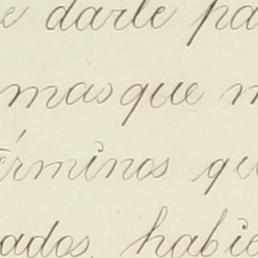 e darle pa
mas que n
érminos qu
ados, habie